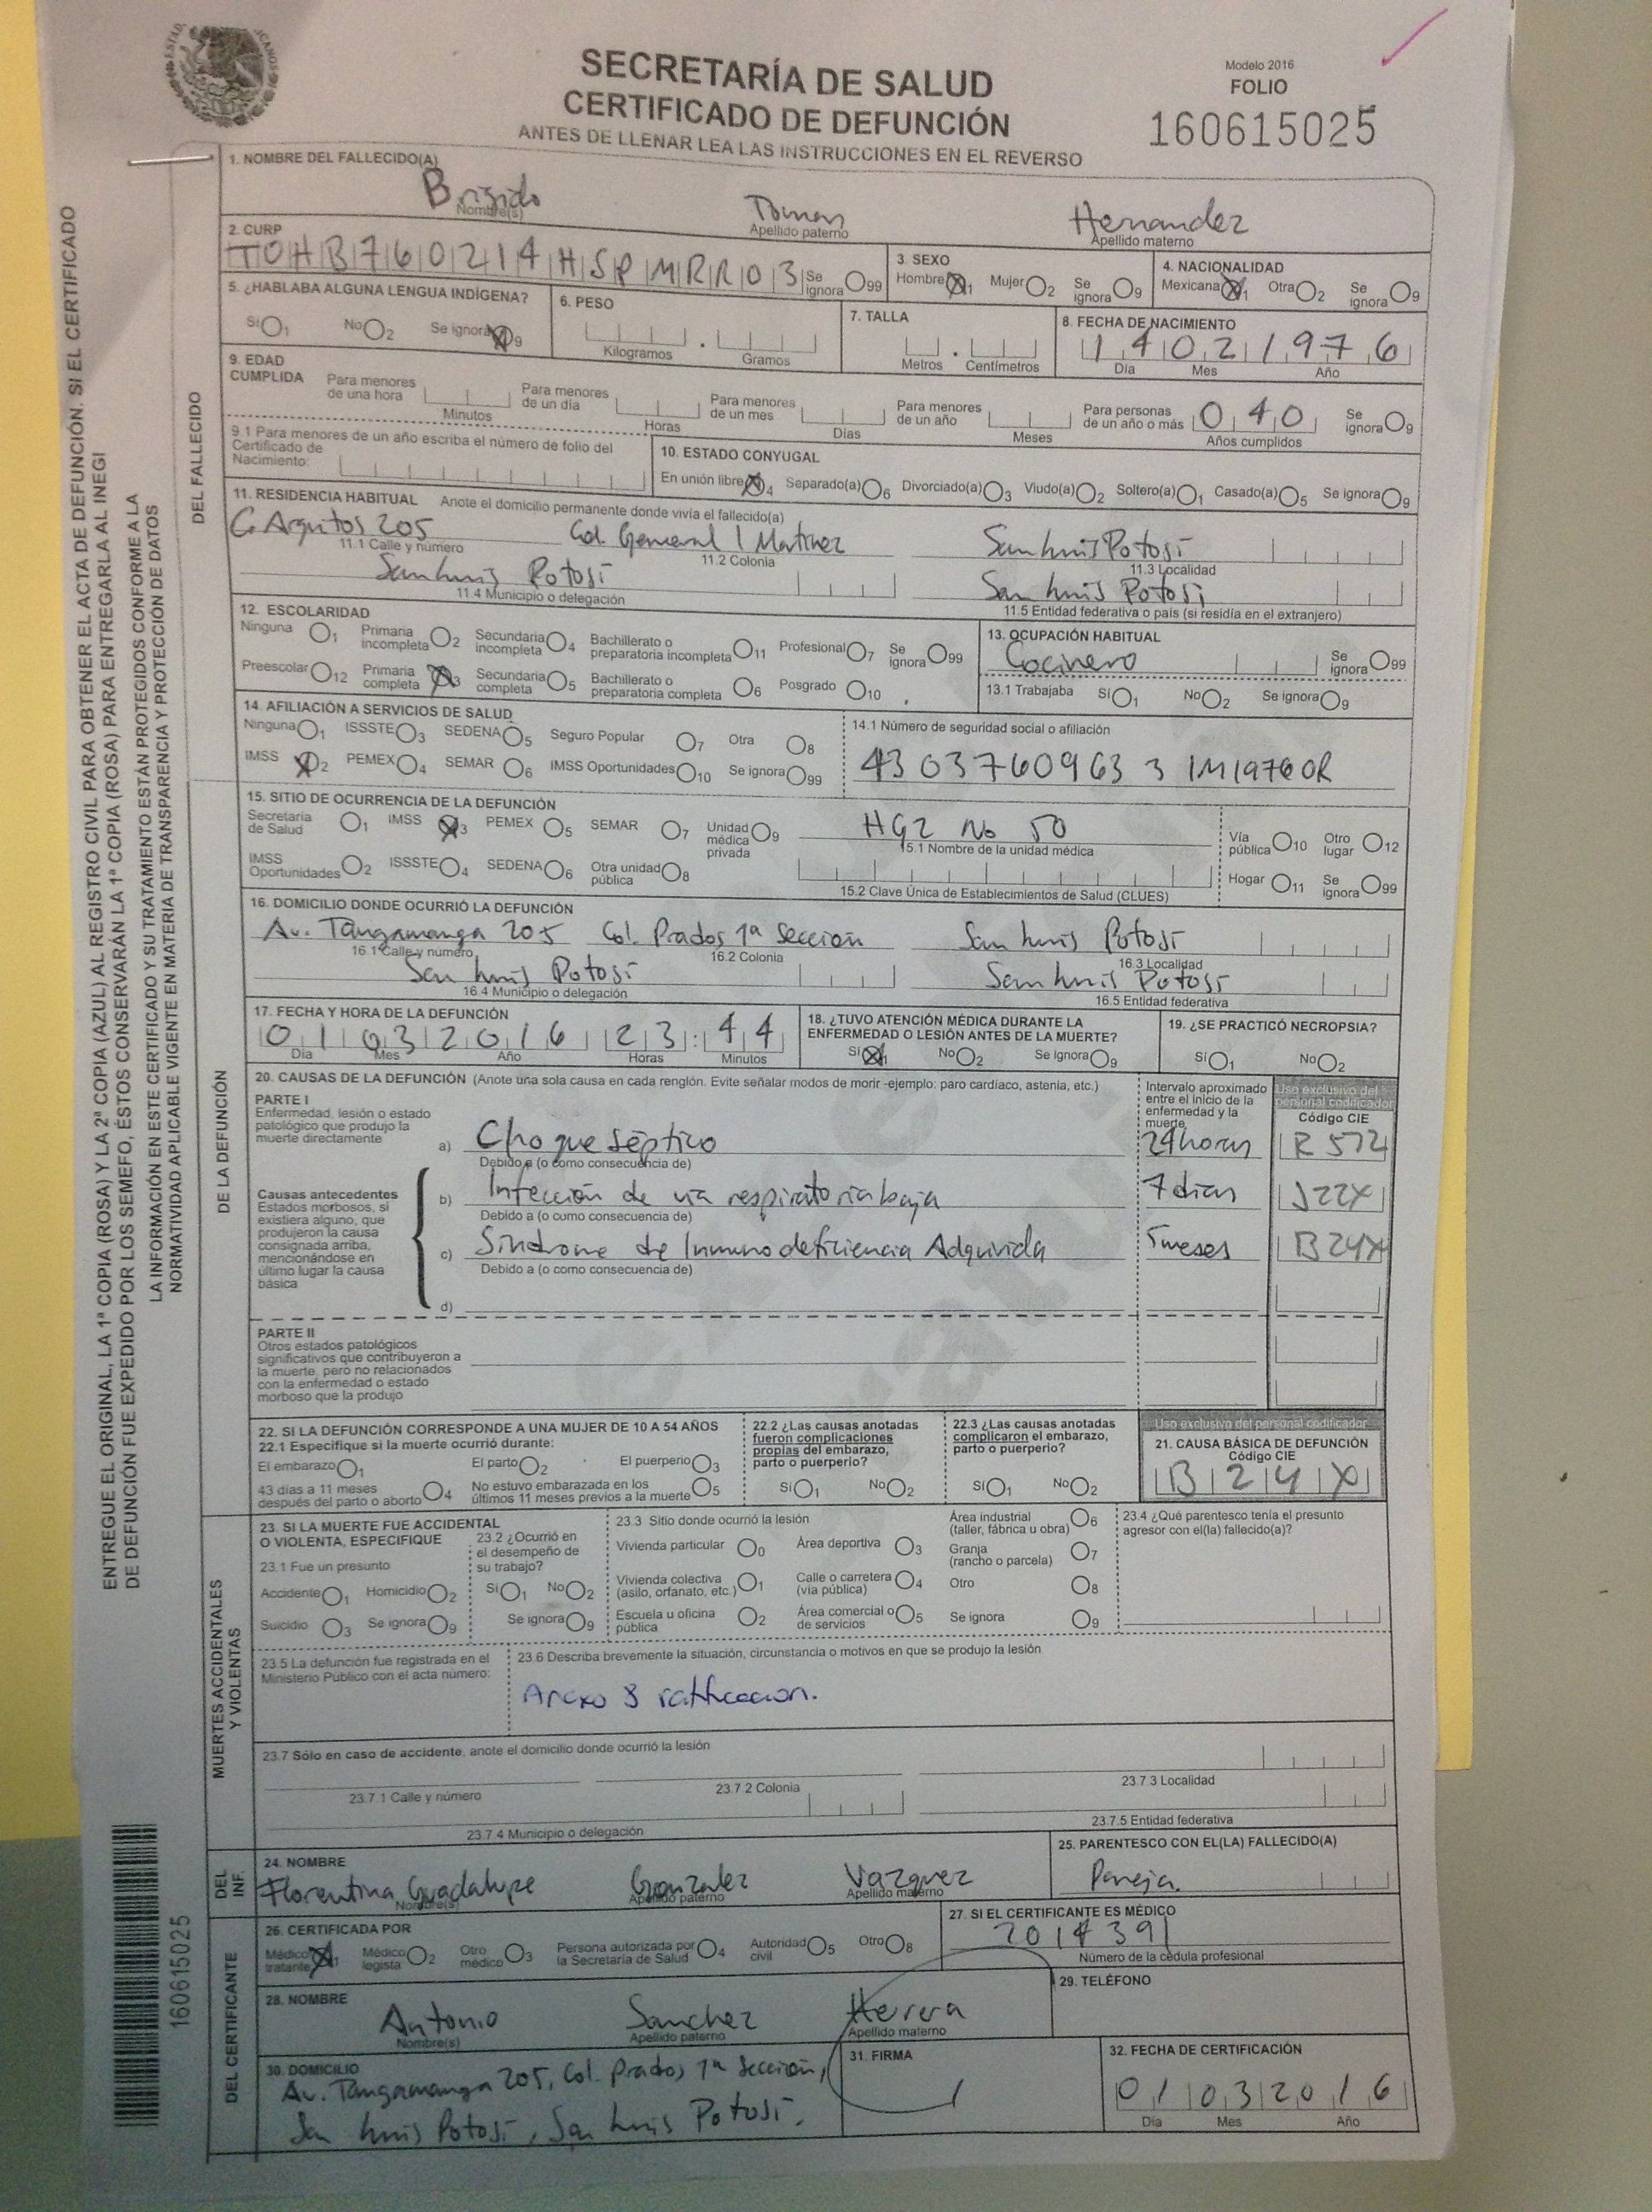 SECRETARÍA DE SALUD
CERTIFICADO DE DEFUNCIÓN
ANTES DE LLENAR LEA LAS INSTRUCCIONES EN EL REVERSO
Modelo 2016
FOLIO
160615025
ENTREGUE EL ORIGINAL, LA 1ª COPIA (ROSA) Y LA 2ª COPIA (AZUL) AL REGISTRO CIVIL PARA OBTENER EL ACTA DE DEFUNCIÓN. SI EL CERTIFICADO
DE DEFUNCIÓN FUE EXPEDIDO POR LOS SEMEFO, ÉSTOS CONSERVARÁN LA 1ª COPIA (ROSA) PARA ENTREGARLA AL INEGI
LA INFORMACIÓN EN ESTE CERTIFICADO Y SU TRATAMIENTO ESTÁN PROTEGIDOS CONFORME A LA
NORMATIVIDAD APLICABLE VIGENTE EN MATERIA DE TRANSPARENCIA Y PROTECCIÓN DE DATOS
DEL FALLECIDO
1. NOMBRE DEL FALLECIDO(A)
Brigido Tomas Hernandez
Nombre(s) Apellido paterno Apellido materno
2. CURP
TOHB760214HSPMRR03 Se ignora 99
3. SEXO
Hombre 1 Mujer 2 Se ignora 9
4. NACIONALIDAD
Mexicana 1 Otra 2 Se ignora 9
5. ¿HABLABA ALGUNA LENGUA INDÍGENA?
Sí 1 No 2 Se ignora 9
6. PESO
Kilogramos . Gramos
7. TALLA
Metros . Centímetros
8. FECHA DE NACIMIENTO
14 02 1976
Día Mes Año
9. EDAD CUMPLIDA
Para menores de una hora Minutos
Para menores de un día Horas
Para menores de un mes Días
Para menores de un año Meses
Para personas de un año o más 040 Años cumplidos
Se ignora 9
9.1 Para menores de un año escriba el número de folio del
Certificado de
Nacimiento:
10. ESTADO CONYUGAL
En unión libre 4 Separado(a) 6 Divorciado(a) 3 Viudo(a) 2 Soltero(a) 1 Casado(a) 5 Se ignora 9
11. RESIDENCIA HABITUAL Anote el domicilio permanente donde vivía el fallecido(a)
205 Col. General I Martinez San Luis Potosí
11.1 Calle y número 11.2 Colonia 11.3 Localidad
San Luis Potosí San Luis Potosí
11.4 Municipio o delegación 11.5 Entidad federativa o país (si residía en el extranjero)
12. ESCOLARIDAD
Ninguna 1 Primaria incompleta 2 Secundaria incompleta 4 Bachillerato o preparatoria incompleta 11 Profesional 7 Se ignora 99
Preescolar 12 Primaria completa 3 Secundaria completa 5 Bachillerato o preparatoria completa 6 Posgrado 10
13. OCUPACIÓN HABITUAL
Cocinero Se ignora 99
13.1 Trabajaba Sí 1 No 2 Se ignora 9
14. AFILIACIÓN A SERVICIOS DE SALUD
Ninguna 1 ISSSTE 3 SEDENA 5 Seguro Popular 7 Otra 8
IMSS 2 PEMEX 4 SEMAR 6 IMSS Oportunidades 10 Se ignora 99
14.1 Número de seguridad social o afiliación
4303760963 3 1M1976OR
DE LA DEFUNCIÓN
15. SITIO DE OCURRENCIA DE LA DEFUNCIÓN
Secretaría de Salud 1 IMSS 3 PEMEX 5 SEMAR 7 Unidad médica privada 9
IMSS Oportunidades 2 ISSSTE 4 SEDENA 6 Otra unidad pública 8
HGZ No 50
15.1 Nombre de la unidad médica
15.2 Clave Única de Establecimientos de Salud (CLUES)
Vía pública 10 Otro lugar 12
Hogar 11 Se ignora 99
16. DOMICILIO DONDE OCURRIÓ LA DEFUNCIÓN
Av. Tangamanga 205 Col. Prados 1ª Sección San Luis Potosí
16.1 Calle y número 16.2 Colonia 16.3 Localidad
San Luis Potosí San Luis Potosí
16.4 Municipio o delegación 16.5 Entidad federativa
17. FECHA Y HORA DE LA DEFUNCIÓN
01 03 2016 23:44
Día Mes Año Horas Minutos
18. ¿TUVO ATENCIÓN MÉDICA DURANTE LA
ENFERMEDAD O LESIÓN ANTES DE LA MUERTE?
Sí 1 No 2 Se ignora 9
19. ¿SE PRACTICÓ NECROPSIA?
Sí 1 No 2
20. CAUSAS DE LA DEFUNCIÓN (Anote una sola causa en cada renglón. Evite señalar modos de morir -ejemplo: paro cardíaco, astenia, etc.)
Intervalo aproximado
entre el inicio de la
enfermedad y la
muerte
Uso exclusivo del
personal codificador
Código CIE
PARTE I
Enfermedad, lesión o estado
patológico que produjo la
muerte directamente
a) Choque séptico 24 horas R572
Debido a (o como consecuencia de)
Causas antecedentes
Estados morbosos, si
existiera alguno, que
produjeron la causa
consignada arriba,
mencionándose en
último lugar la causa
básica
b) Infección de vía respiratoria baja 7 días J22X
Debido a (o como consecuencia de)
c) Síndrome de Inmunodeficiencia Adquirida 5 meses B24X
Debido a (o como consecuencia de)
d)
PARTE II
Otros estados patológicos
significativos que contribuyeron a
la muerte, pero no relacionados
con la enfermedad o estado
morboso que la produjo
22. SI LA DEFUNCIÓN CORRESPONDE A UNA MUJER DE 10 A 54 AÑOS
22.1 Especifique si la muerte ocurrió durante:
El embarazo 1 El parto 2 El puerperio 3
43 días a 11 meses después del parto o aborto 4 No estuvo embarazada en los últimos 11 meses previos a la muerte 5
22.2 ¿Las causas anotadas
fueron complicaciones
propias del embarazo,
parto o puerperio?
Sí 1 No 2
22.3 ¿Las causas anotadas
complicaron el embarazo,
parto o puerperio?
Sí 1 No 2
Uso exclusivo del personal codificador
21. CAUSA BÁSICA DE DEFUNCIÓN
Código CIE
B24X
MUERTES ACCIDENTALES
Y VIOLENTAS
23. SI LA MUERTE FUE ACCIDENTAL
O VIOLENTA, ESPECIFIQUE
23.1 Fue un presunto
Accidente 1 Homicidio 2
Suicidio 3 Se ignora 9
23.2 ¿Ocurrió en
el desempeño de
su trabajo?
Sí 1 No 2
Se ignora 9
23.3 Sitio donde ocurrió la lesión
Vivienda particular 0 Área deportiva 3 Área industrial (taller, fábrica u obra) 6
Vivienda colectiva (asilo, orfanato, etc.) 1 Calle o carretera (vía pública) 4 Granja (rancho o parcela) 7
Escuela u oficina pública 2 Área comercial o de servicios 5 Otro 8
Se ignora 9
23.4 ¿Qué parentesco tenía el presunto
agresor con el(la) fallecido(a)?
23.5 La defunción fue registrada en el
Ministerio Público con el acta número:
23.6 Describa brevemente la situación, circunstancia o motivos en que se produjo la lesión
Anexo 8 ratificacion.
23.7 Sólo en caso de accidente, anote el domicilio donde ocurrió la lesión
23.7.1 Calle y número 23.7.2 Colonia 23.7.3 Localidad
23.7.4 Municipio o delegación 23.7.5 Entidad federativa
DEL INF.
24. NOMBRE
Florentina Guadalupe Gonzalez Vazquez
Nombre(s) Apellido paterno Apellido materno
25. PARENTESCO CON EL(LA) FALLECIDO(A)
Pareja.
DEL CERTIFICANTE
26. CERTIFICADA POR
Médico tratante 1 Médico legista 2 Otro médico 3 Persona autorizada por la Secretaría de Salud 4 Autoridad civil 5 Otro 8
27. SI EL CERTIFICANTE ES MÉDICO
2014391
Número de la cédula profesional
28. NOMBRE
Antonio Sanchez Herrera
Nombre(s) Apellido paterno Apellido materno
29. TELÉFONO
30. DOMICILIO
Av. Tangamanga 205, Col. Prados 1ª Sección,
San Luis Potosí, San Luis Potosí.
31. FIRMA
32. FECHA DE CERTIFICACIÓN
01 03 2016
Día Mes Año
160615025